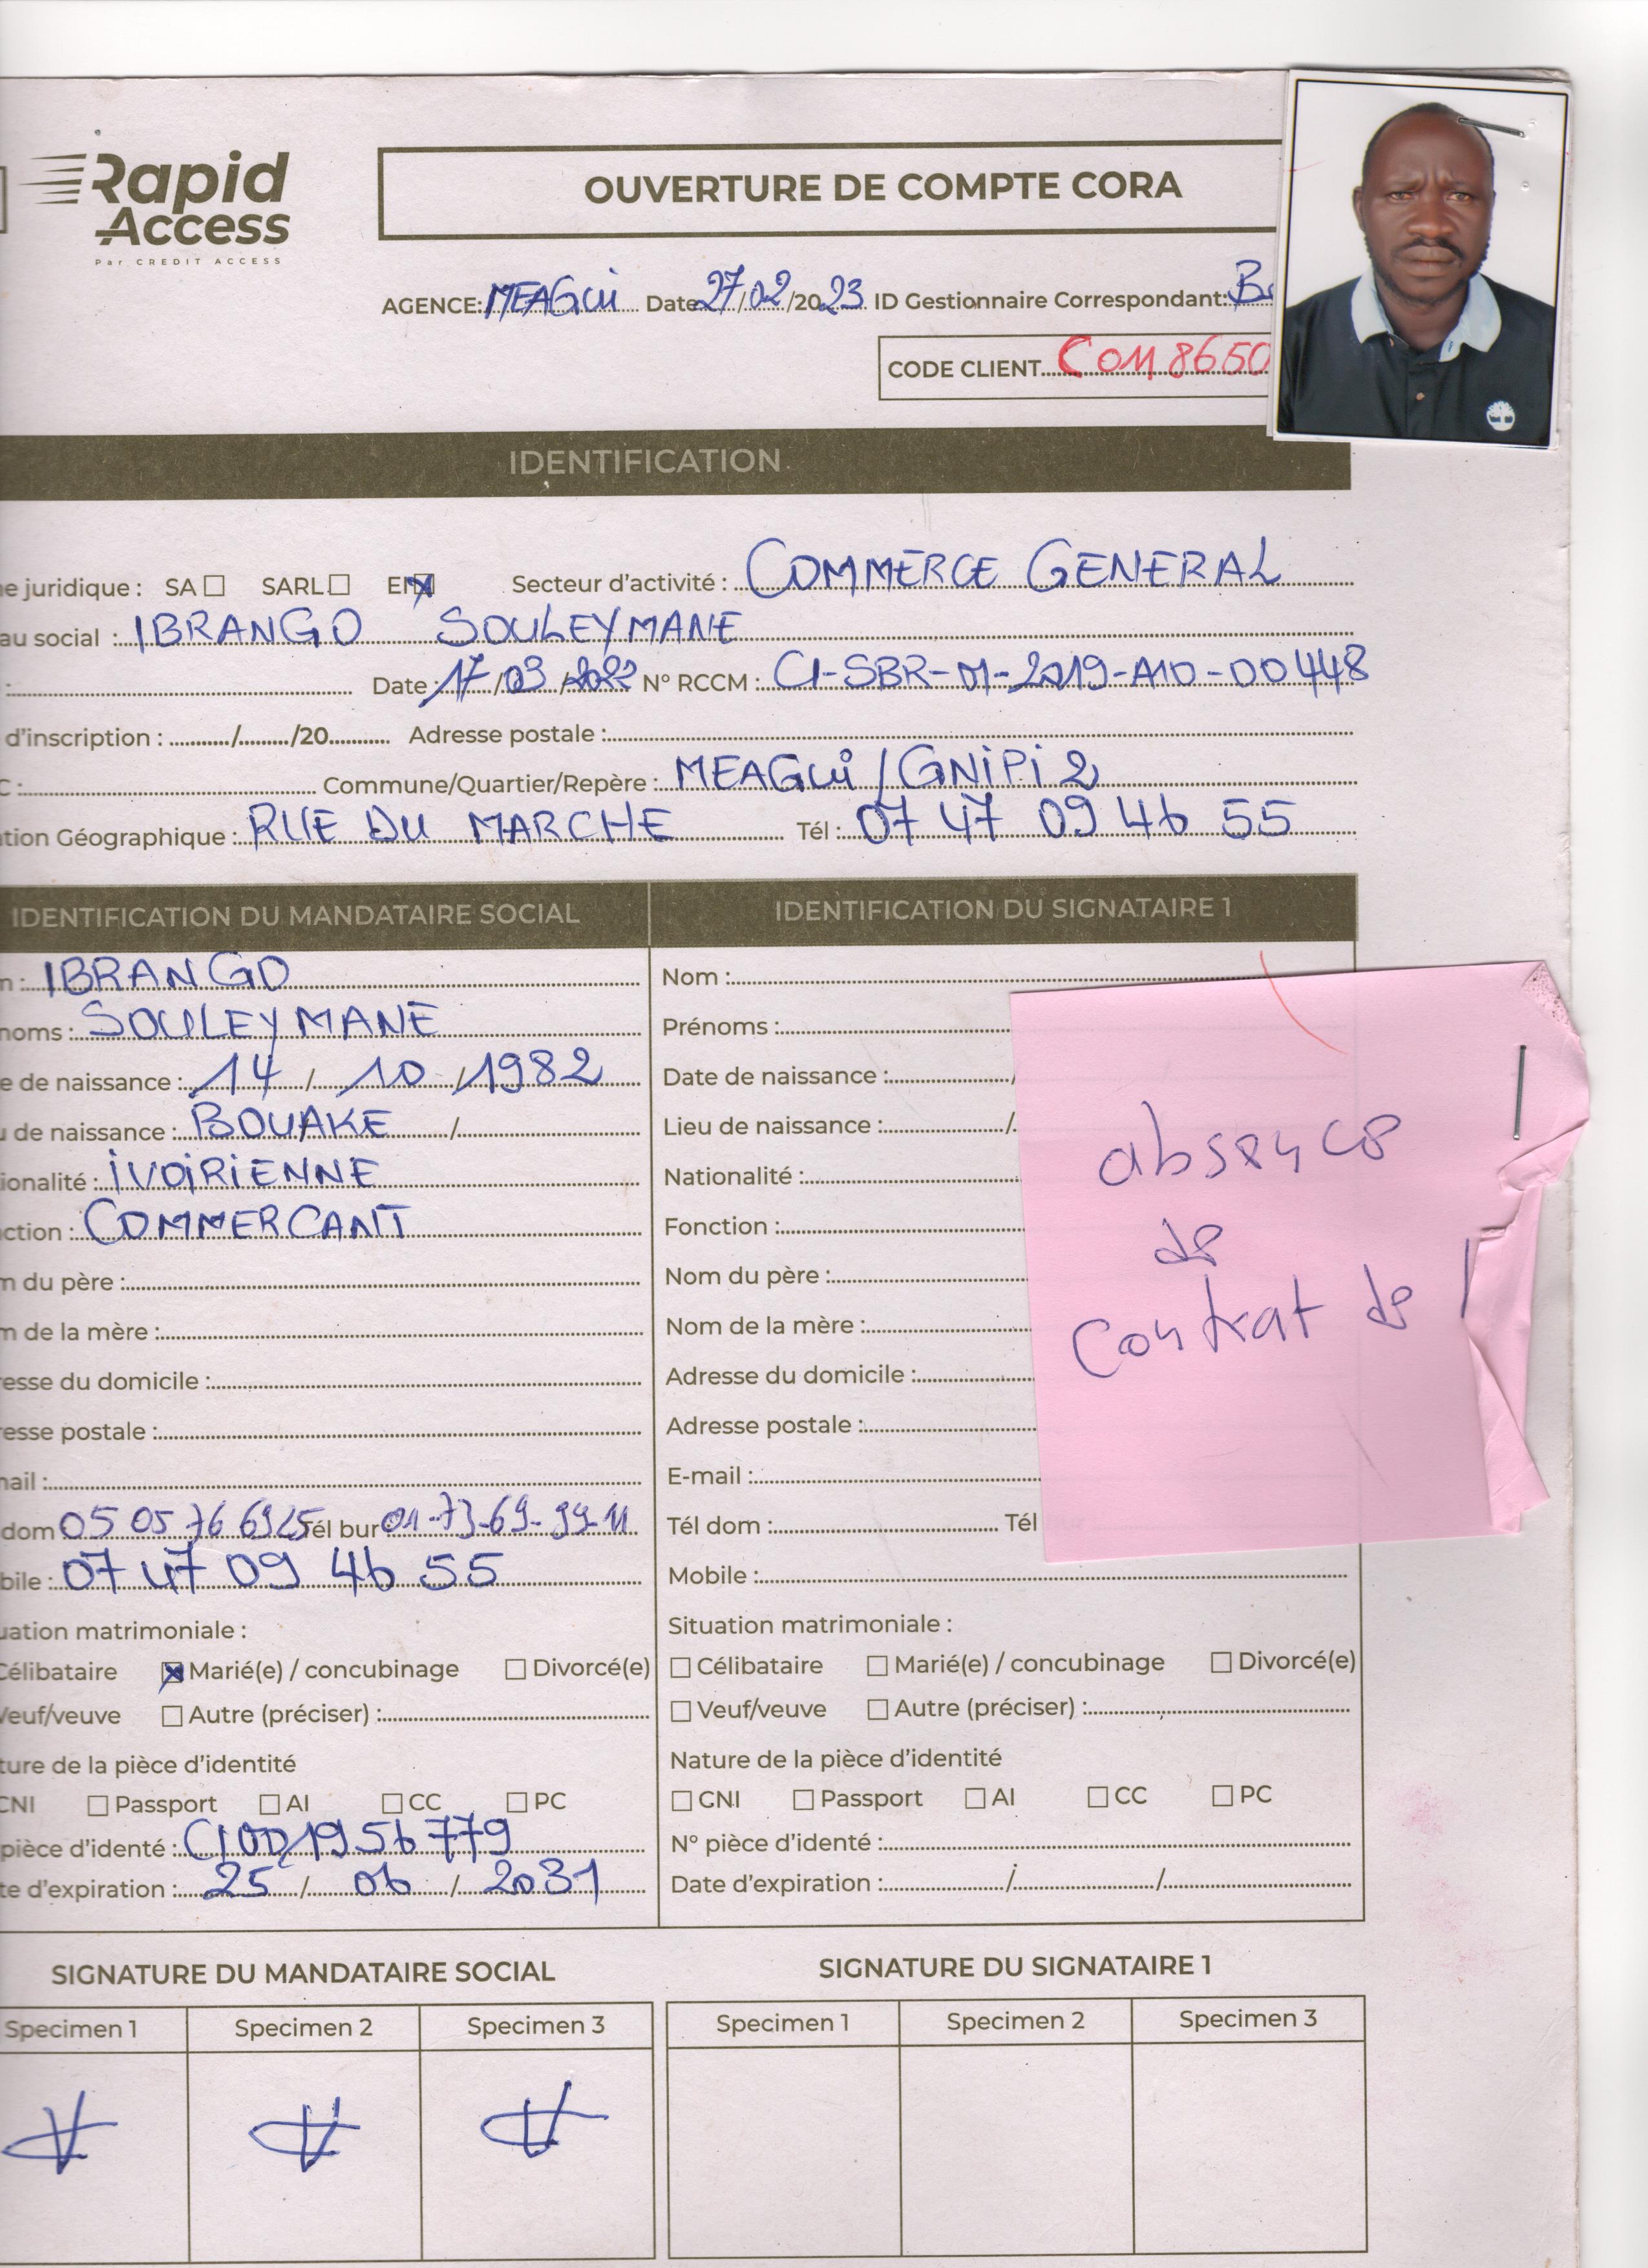 Rapid
Access
Par CREDIT ACCESS
OUVERTURE DE COMPTE CORA
AGENCE: MEAGUI Date 27/02/2023 ID Gestionnaire Correspondant:
CODE CLIENT COM 8650
IDENTIFICATION
e juridique : SA SARL EI Secteur d'activité : COMMERCE GENERAL
au social : IBRANGO SOULEYMANE
: Date : 17/03/2022 N° RCCM : CI-SBR-M-2019-A10-00448
d'inscription : / /20 Adresse postale :
C : Commune/Quartier/Repère : MEAGUI / GNIPI 2
tion Géographique : RUE DU MARCHE Tél : 07 47 09 46 55
IDENTIFICATION DU MANDATAIRE SOCIAL
n : IBRANGO
noms : SOULEYMANE
e de naissance : 14 / 10 / 1982
u de naissance : BOUAKE /
ionalité : IVOIRIENNE
ction : COMMERCANT
m du père :
m de la mère :
esse du domicile :
esse postale :
nail :
dom 05 05 76 69 Tél bur 01-73-69-99-11
bile : 07 47 09 46 55
uation matrimoniale :
Célibataire Marié(e) / concubinage Divorcé(e)
Veuf/veuve Autre (préciser) :
ture de la pièce d'identité
CNI Passport AI CC PC
pièce d'identé : CI001956779
te d'expiration : 25 / 06 / 2031
IDENTIFICATION DU SIGNATAIRE 1
Nom :
Prénoms :
Date de naissance : /
Lieu de naissance : /
Nationalité :
Fonction :
Nom du père :
Nom de la mère :
Adresse du domicile :
Adresse postale :
E-mail :
Tél dom : Tél
Mobile :
Situation matrimoniale :
Célibataire Marié(e) / concubinage Divorcé(e)
Veuf/veuve Autre (préciser) :
Nature de la pièce d'identité
CNI Passport AI CC PC
N° pièce d'identé :
Date d'expiration : / /
absence
de
contrat de
SIGNATURE DU MANDATAIRE SOCIAL
Specimen 1 Specimen 2 Specimen 3
SIGNATURE DU SIGNATAIRE 1
Specimen 1 Specimen 2 Specimen 3